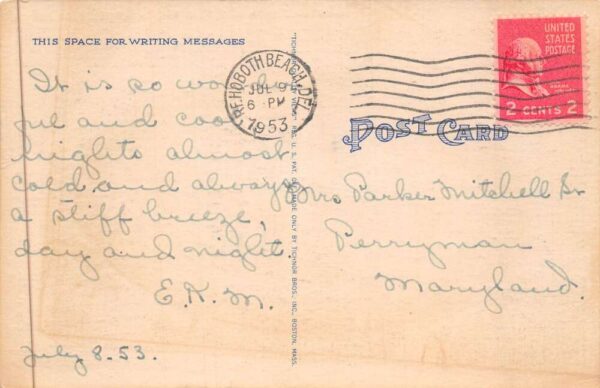 THIS SPACE FOR WRITING MESSAGES
It is so wonder
ful and cool
nights almost
cold and always
a stiff breeze,
day and night.
E.K.M.
July 8-53.
MADE ONLY BY TICHNOR BROS., INC., BOSTON, MASS.
REHOBOTH BEACH, DEL.
JUL 9
6 PM
1953
UNITED
STATES
POSTAGE
2 CENTS 2
POST CARD
Mrs Parker Mitchell Sr
Perryman
Maryland.